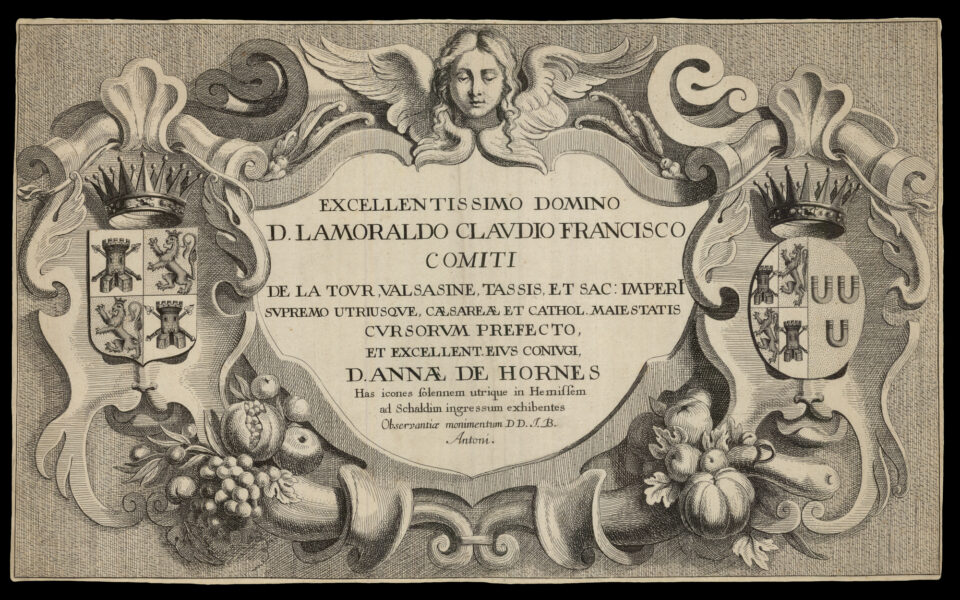 EXCELLENTISSIMO DOMINO
D. LAMORALDO CLAVDIO FRANCISCO
COMITI
DE LA TOVR, VALSASINE, TASSIS, ET SAC: IMPERI
SVPREMO UTRIUSQVE, CÆSAREÆ ET CATHOL. MAIESTATIS
CVRSORVM PREFECTO,
ET EXCELLENT. EIVS CONIVGI,
D. ANNÆ DE HORNES
Has icones sólennem utrique in Hemissem
ad Schaldim ingressum exhibentes
Observantiæ monumentum D D. I. B.
Antoni.